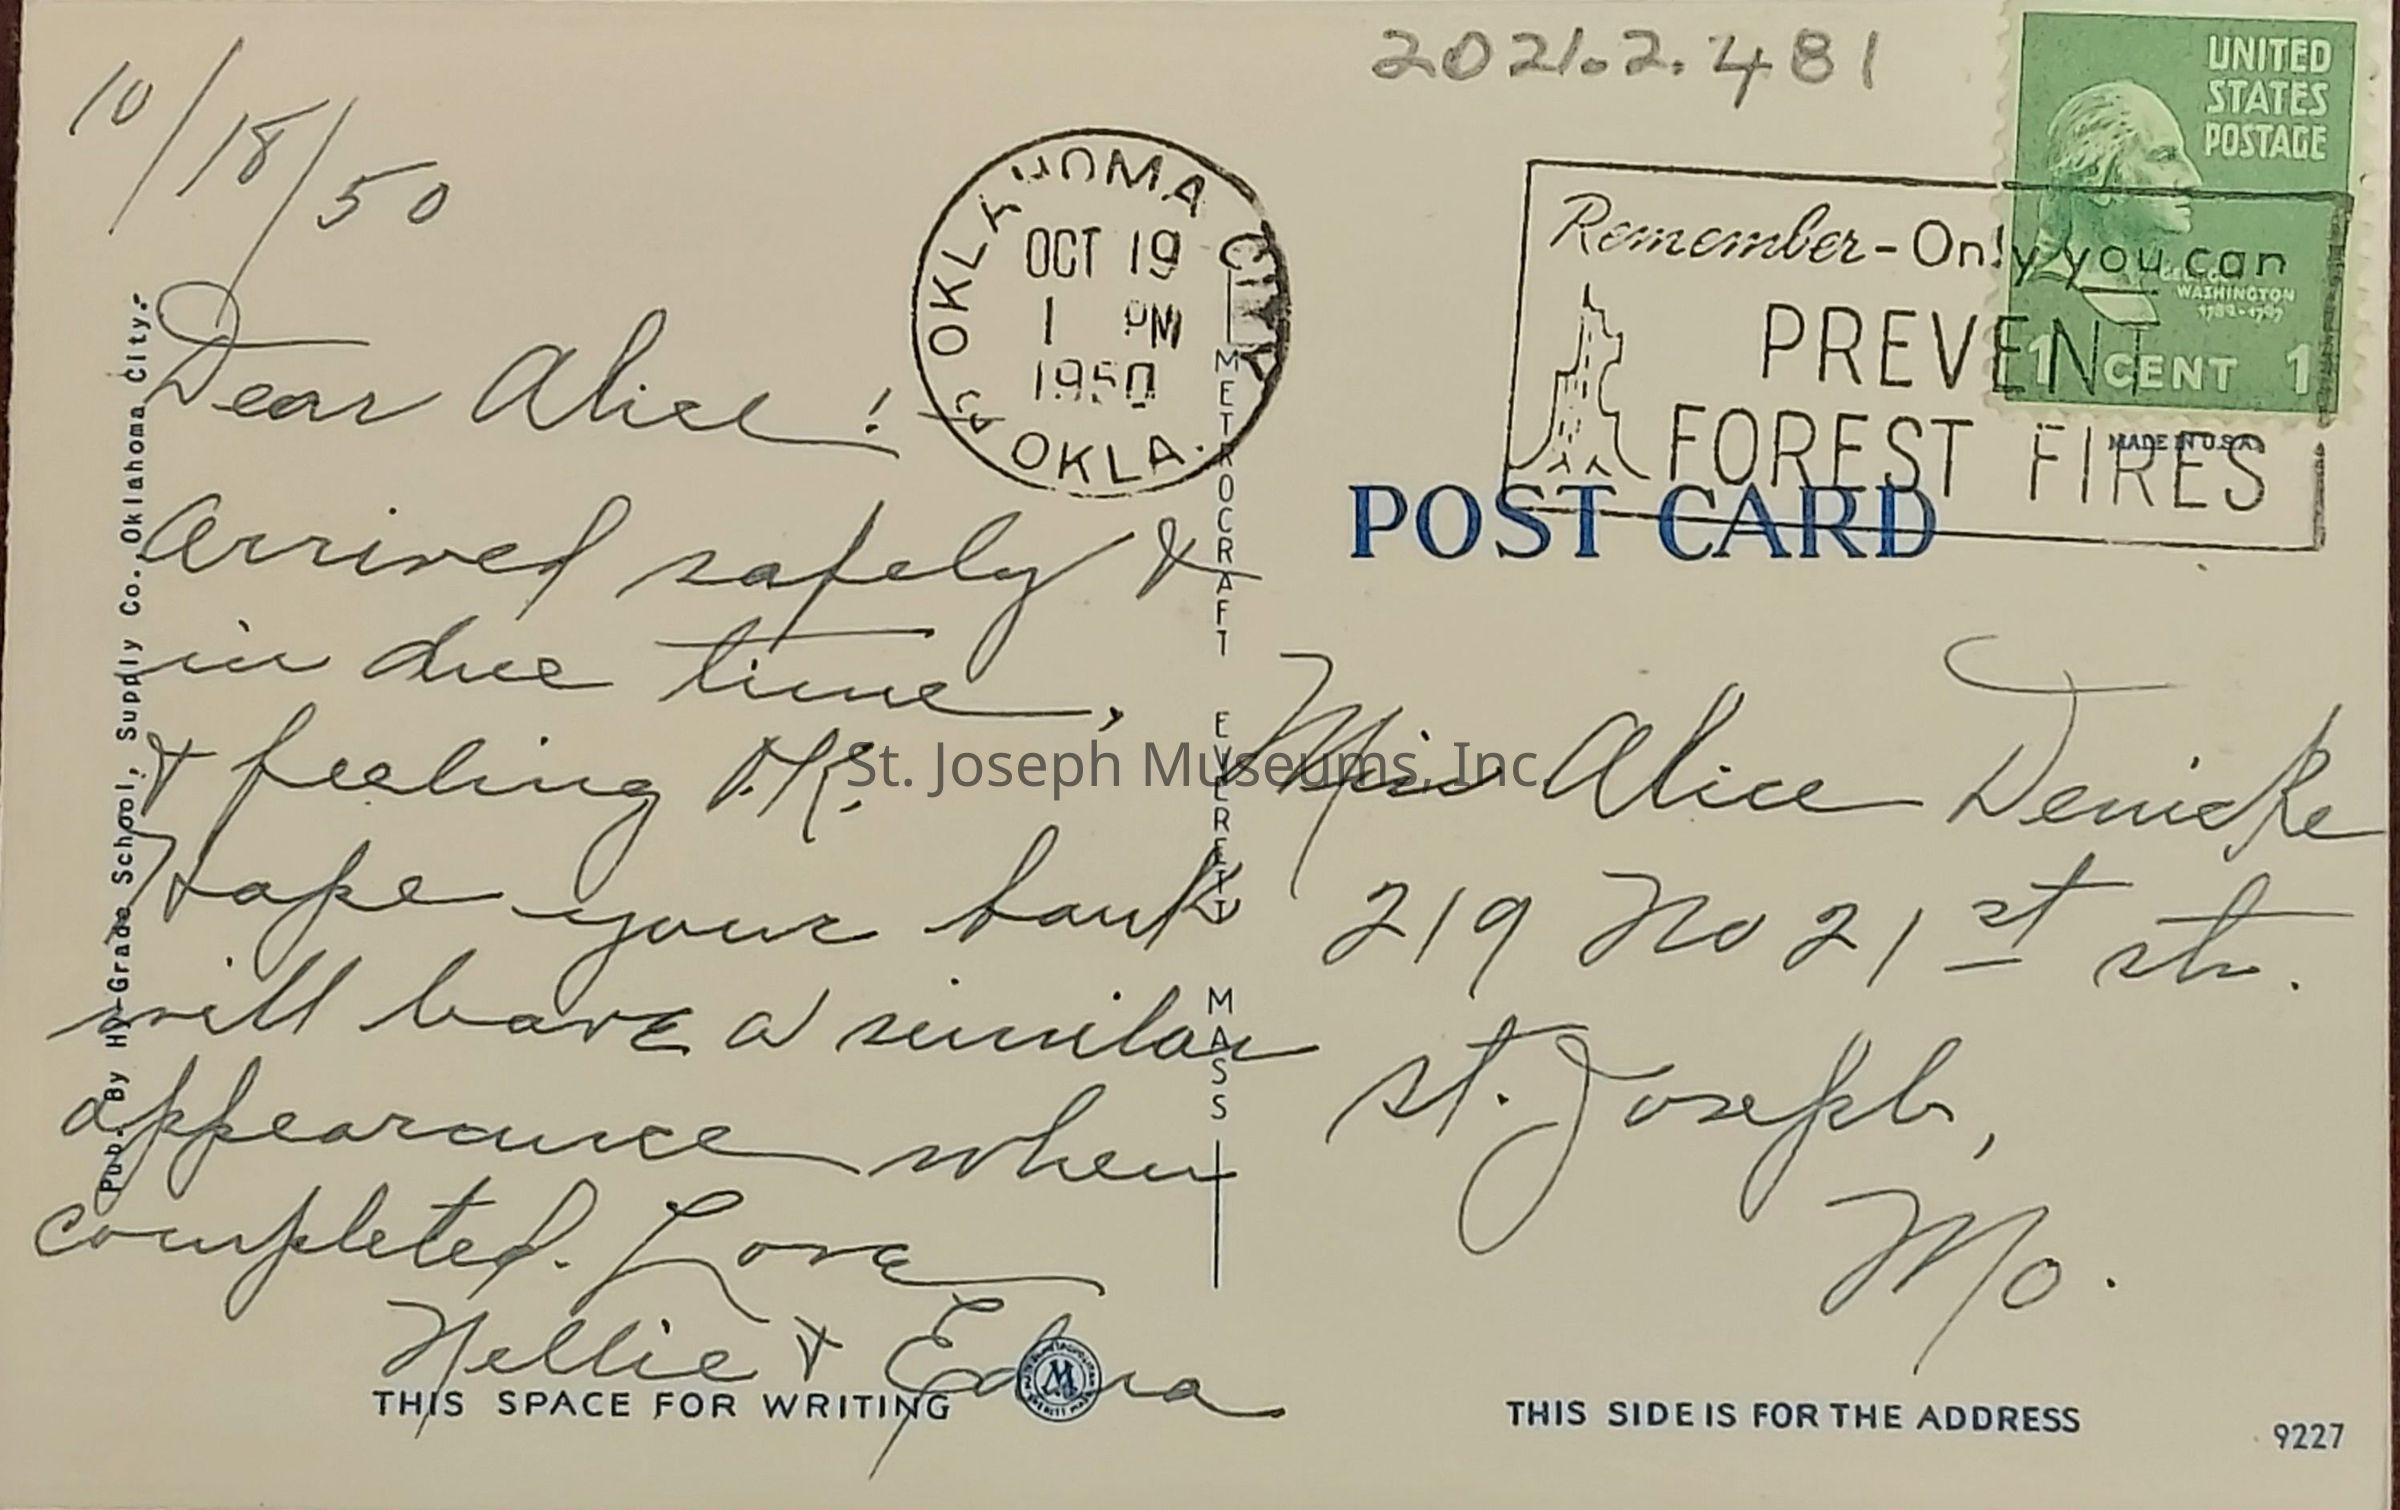 10/18/50
Dear Alice!
Arrived safely &
in due time,
& feeling O.K.
Hope your bank
will have a similar
appearance when
completed. Love
Nellie & Edna
THIS SPACE FOR WRITING
Pub. By Hy-Grade School, Supply Co., Oklahoma City.
METROCRAFT EVERETT MASS
OKLAHOMA CITY
OKLA.
OCT 19
1 PM
1950
2021.2.481
UNITED
STATES
POSTAGE
WASHINGTON
1789-1797
1 CENT 1
Remember - Only you can
PREVENT
FOREST FIRES
MADE IN U.S.A.
POST CARD
Miss Alice Denicke
219 No 21st st.
St. Joseph,
Mo.
THIS SIDE IS FOR THE ADDRESS
9227
St. Joseph Museums, Inc.